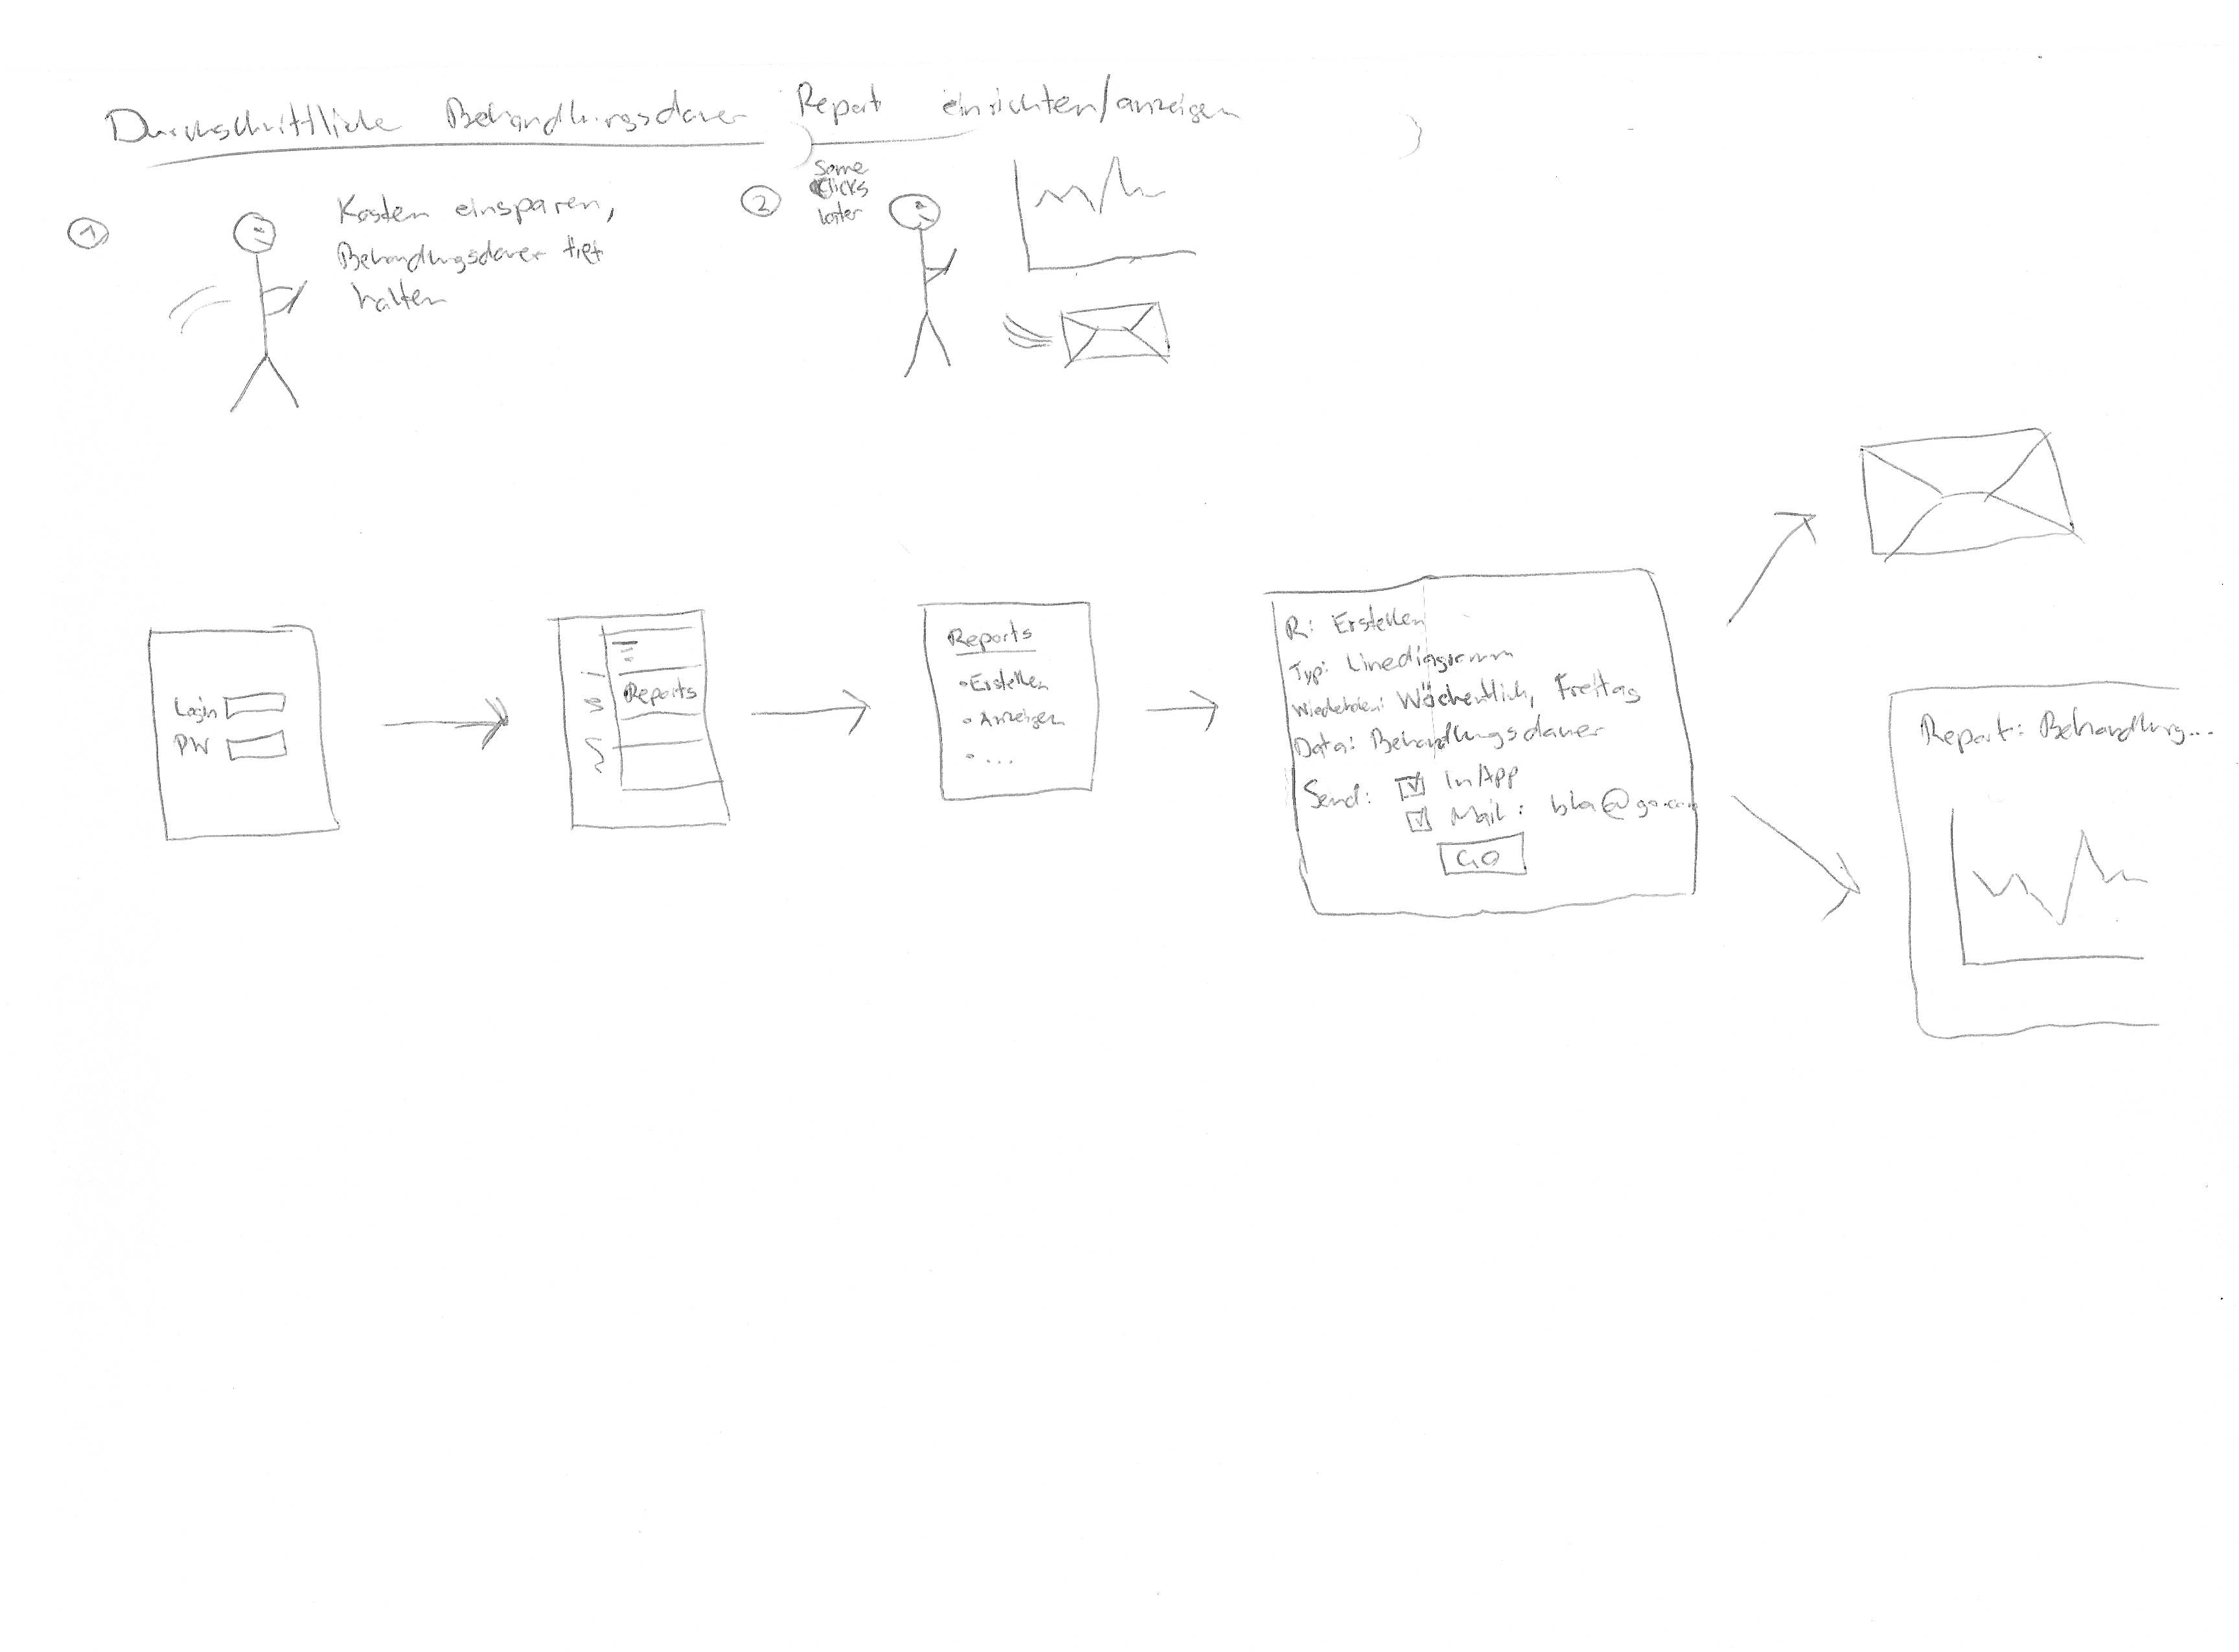 Durchschnittliche Behandlungsdauer Report einrichten/anzeigen
1
Kosten einsparen,
Behandlungsdauer tief
halten
2
Some
Clicks
later
Login
PW
Reports
Reports
• Erstellen
• Anzeigen
• ...
R: Erstellen
Typ: Linediagramm
Wiederholen: Wöchentlich, Freitag
Data: Behandlungsdauer
Send: In/App
Mail: bla@go.com
GO
Report: Behandlung...